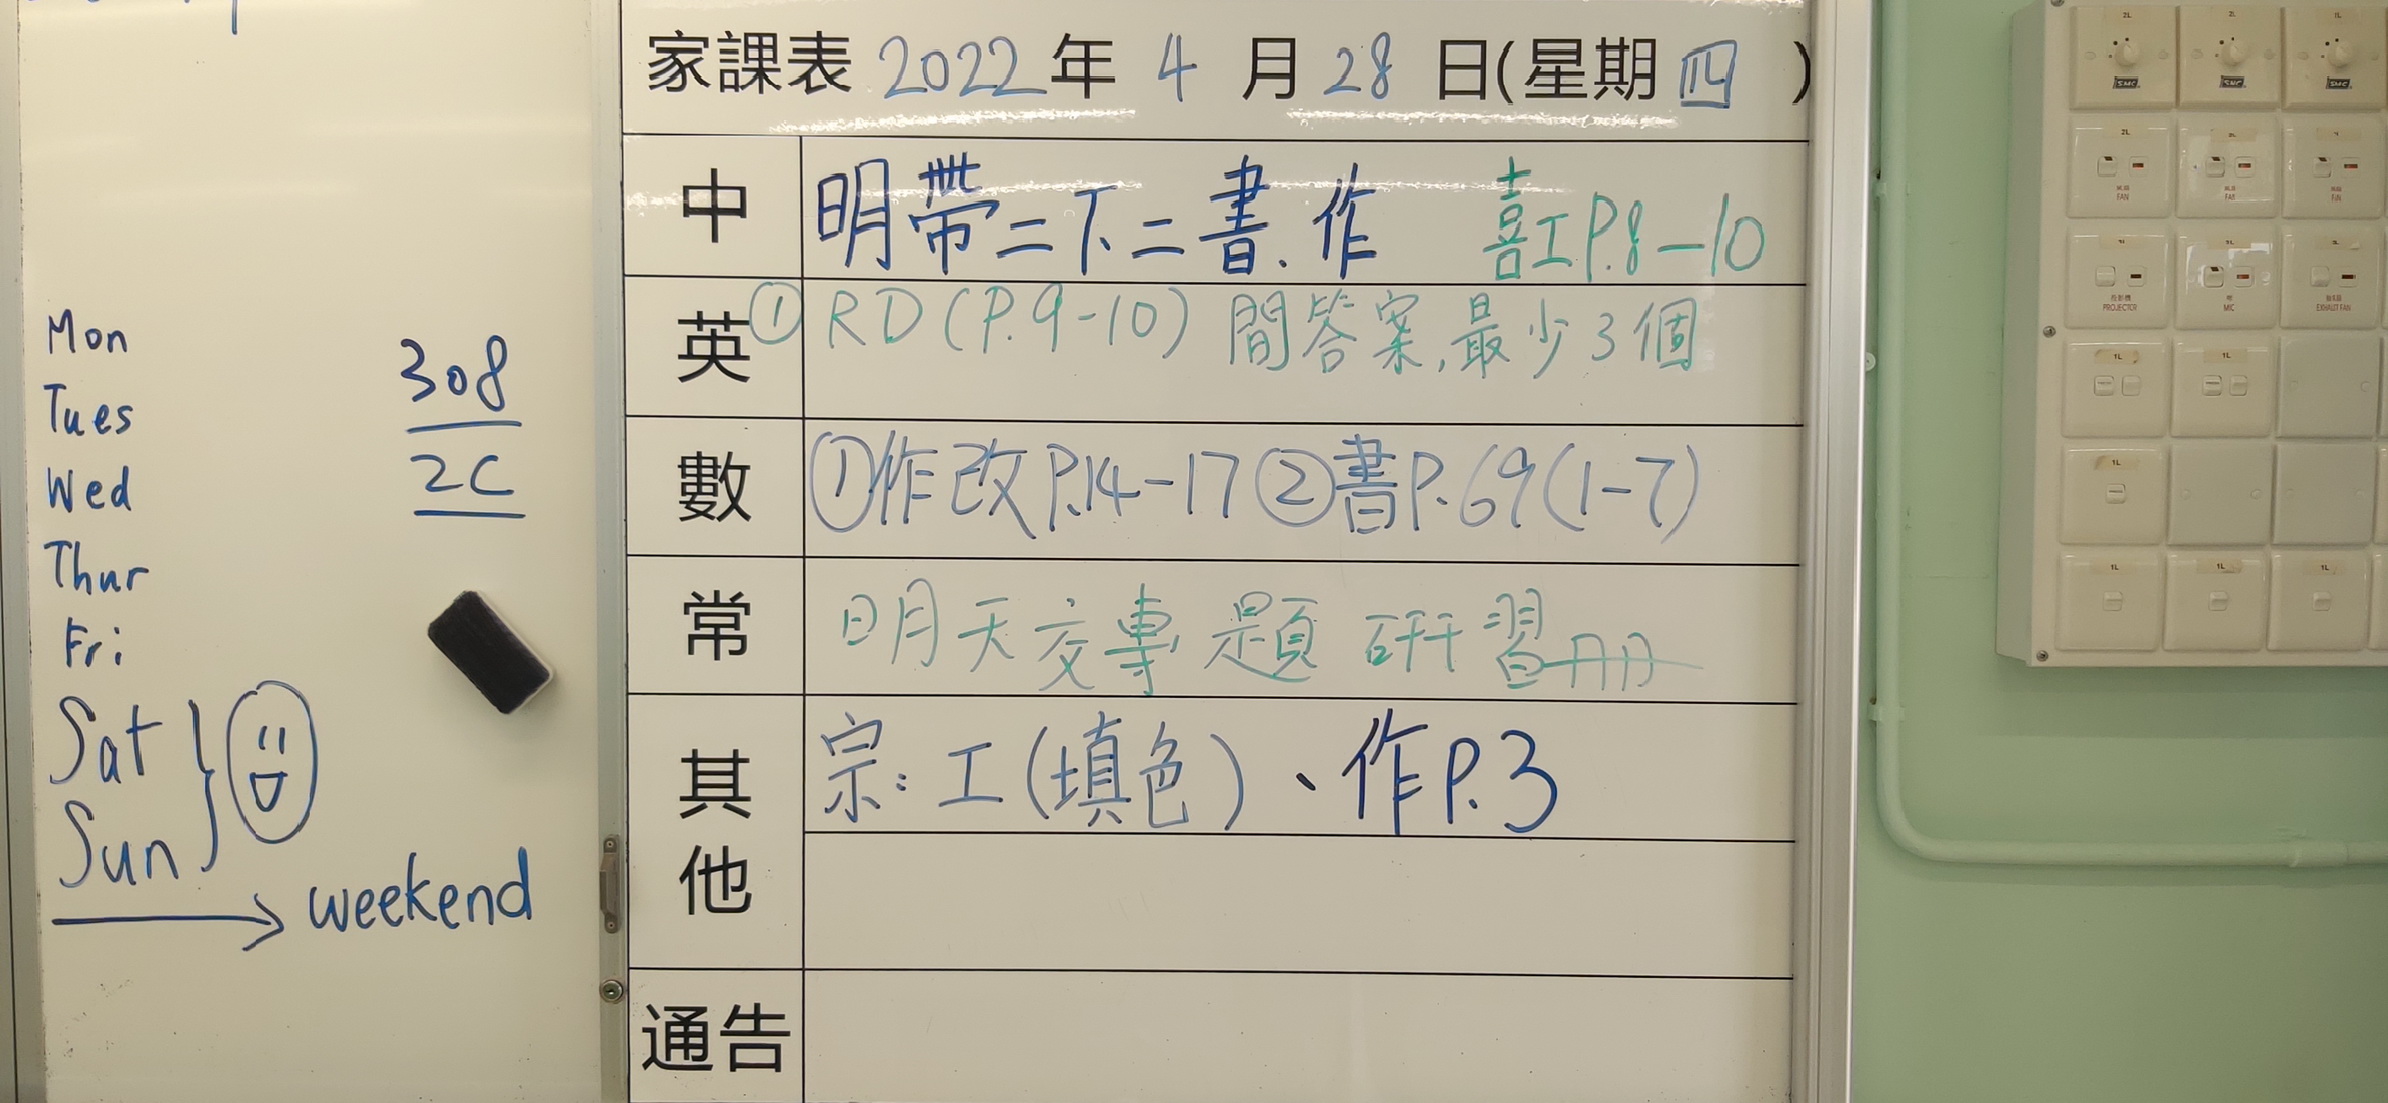 Mon
Tues
Wed
Thur
Fri
Sat
Sun
weekend
308
2C
家課表 2022 年 4 月 28 日(星期四)
中 明帶二下二書.作 喜工P.8-10
英 ① RD (P.9-10) 間答案,最少3個
數 ①作改P.14-17②書P.69(1-7)
常 明天交專題研習冊
其他 宗:工(填色)、作P.3
通告
2L 2L 1L
SMC SMC SMC
2L 2L 1L
風扇 風扇 風扇
FAN FAN FAN
投影機
PROJECTOR MIC EXHAUST FAN
1L 1L
1L
1L 1L 1L